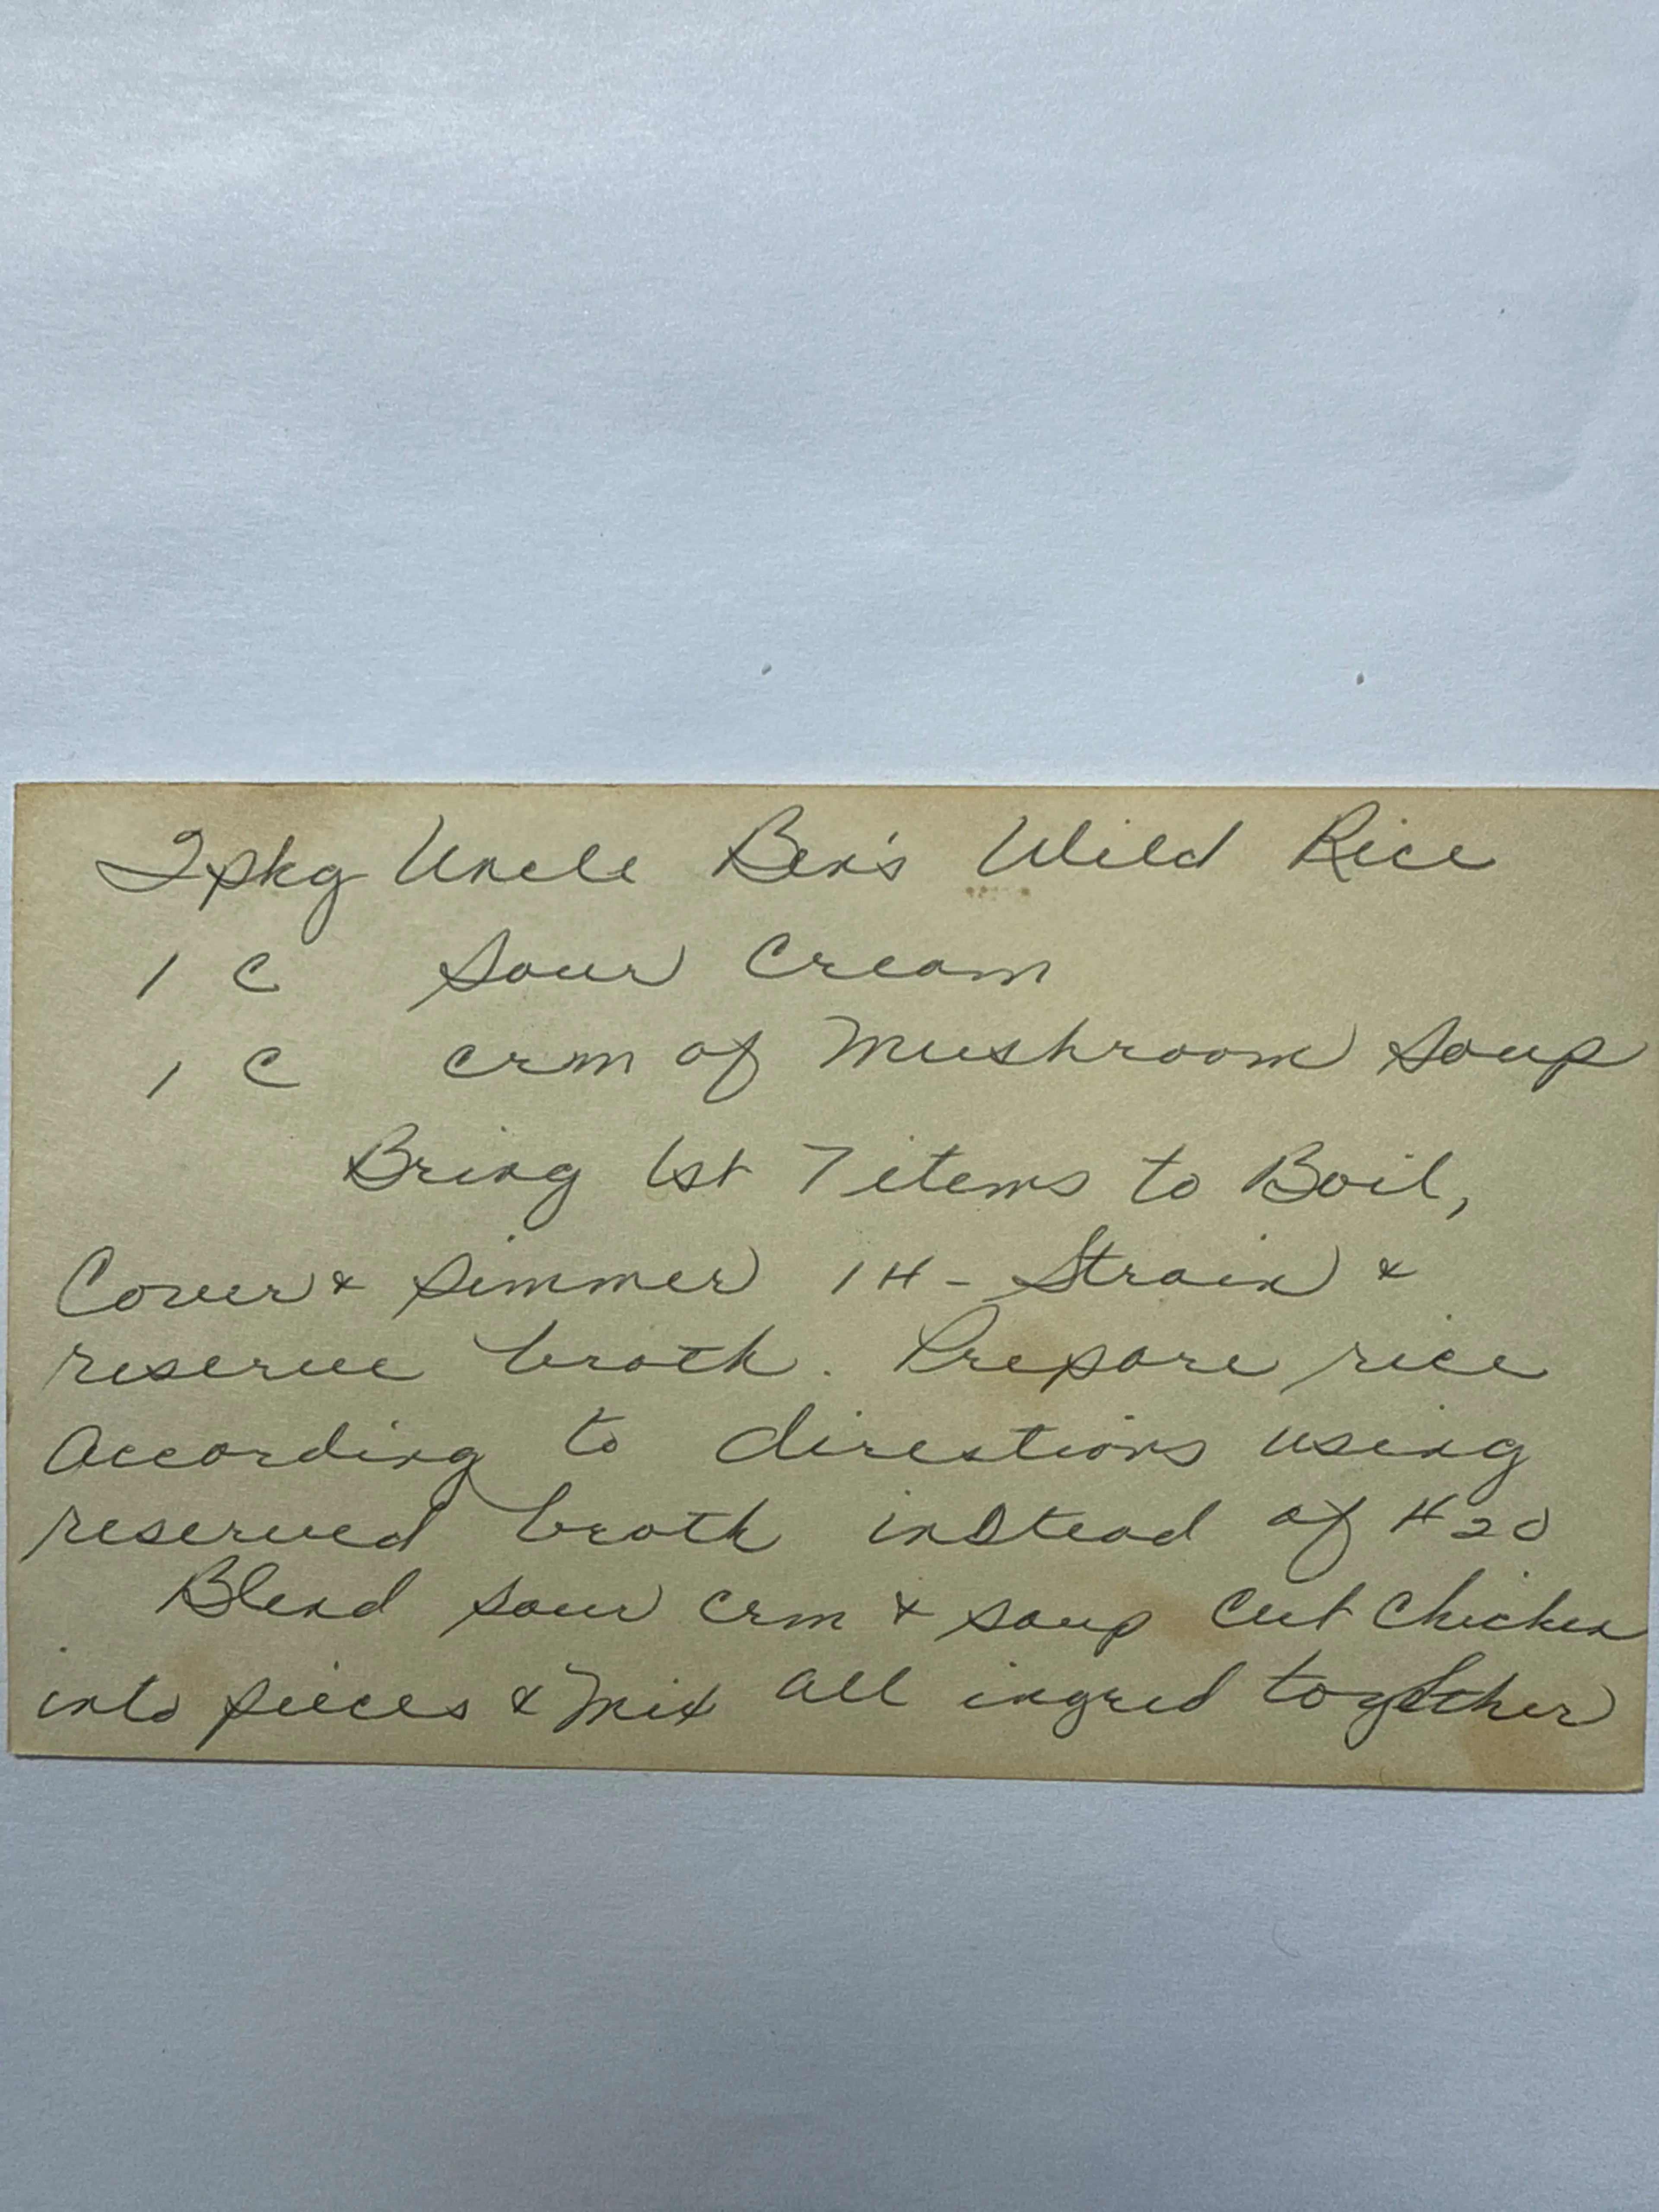 2 pkg Uncle Ben's Wild Rice
1 C Sour Cream
1 C crm of Mushroom Soup
Bring 1st 7 items to Boil,
Cover & Simmer 1 H - Strain &
reserve broth. Prepare rice
According to directions using
reserved broth instead of H20
Blend sour crm & soup Cut Chicken
into pieces & Mix All ingred together